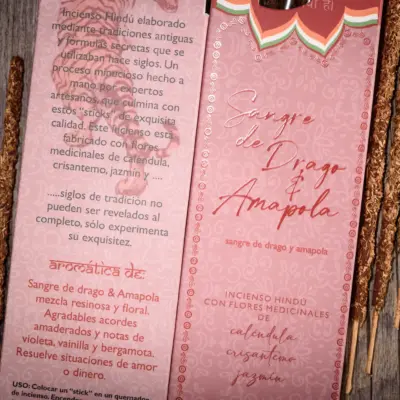 Incienso Hindú elaborado
mediante tradiciones antiguas
y formulas secretas que se
utilizaban hace siglos. Un
proceso minucioso hecho a
mano por expertos
artesanos, que culmina con
estos "sticks" de exquisita
calidad. Este incienso está
fabricado con flores
medicinales de caléndula,
crisantemo, jazmín y ....
.....siglos de tradición no
pueden ser revelados al
completo, sólo experimenta
su exquisitez.
aromática de:
Sangre de drago & Amapola
mezcla resinosa y floral.
Agradables acordes
amaderados y notas de
violeta, vainilla y bergamota.
Resuelve situaciones de amor
o dinero.
USO: Colocar un "stick" en un quemador
de incienso. Encender
Sangre
de Drago
&
Amapola
sangre de drago y amapola
INCIENSO HINDÚ
CON FLORES MEDICINALES
DE
caléndula
crisantemo
jazmín